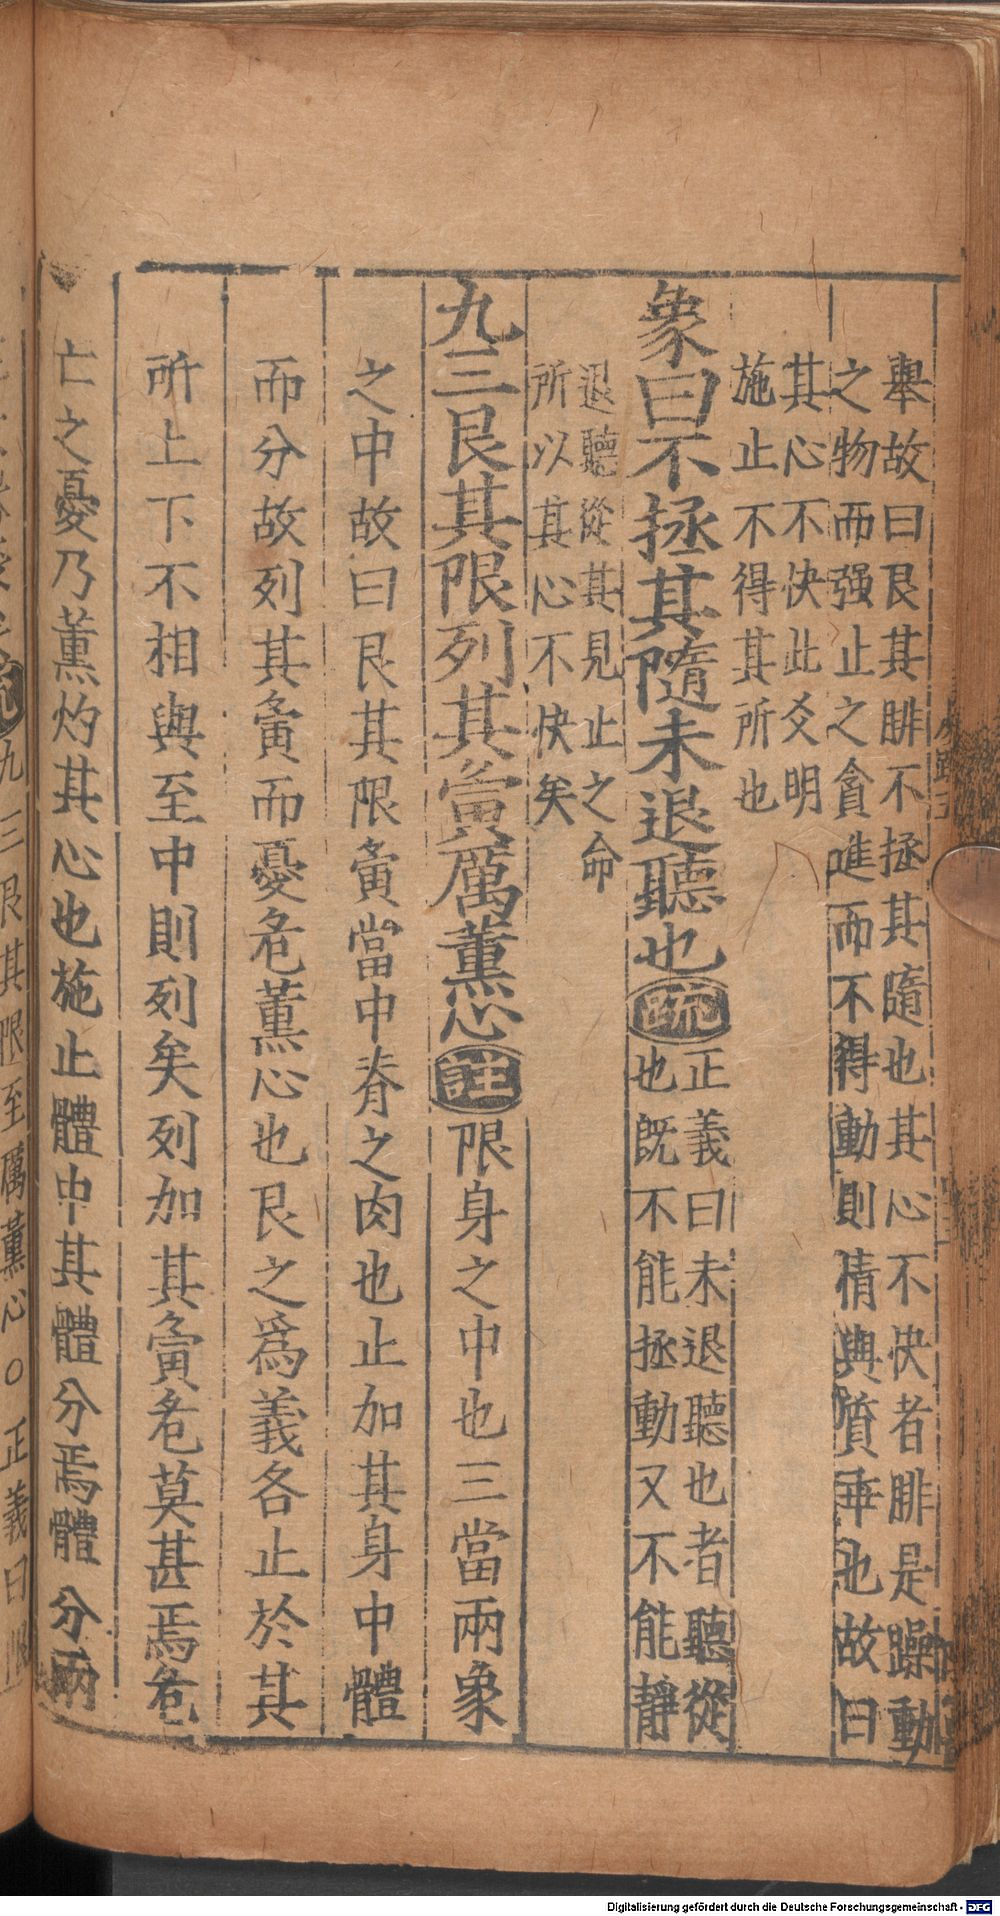 舉故曰艮其腓不拯其隨也其心不快者腓是躁動
之物而强止之貪進而不得動則情與質乖也故曰
其心不快此爻明
施止不得其所也
象曰不拯其隨未退聽也疏
正義曰未退聽也者聽從
也既不能拯動又不能靜
退聽從其見止之命
所以其心不快矣
九三艮其限列其夤厲薫心註限身之中也三當兩象
之中故曰艮其限夤當中脊之肉也止加其身中體
而分故列其夤而憂危薫心也艮之爲義各止於其
所上下不相與至中則列矣列加其夤危莫甚焉危
亡之憂乃薫灼其心也施止體中其體分焉體分兩
九三艮其限至厲薫心○正義曰限
Digitalisierung gefördert durch die Deutsche Forschungsgemeinschaft - DFG